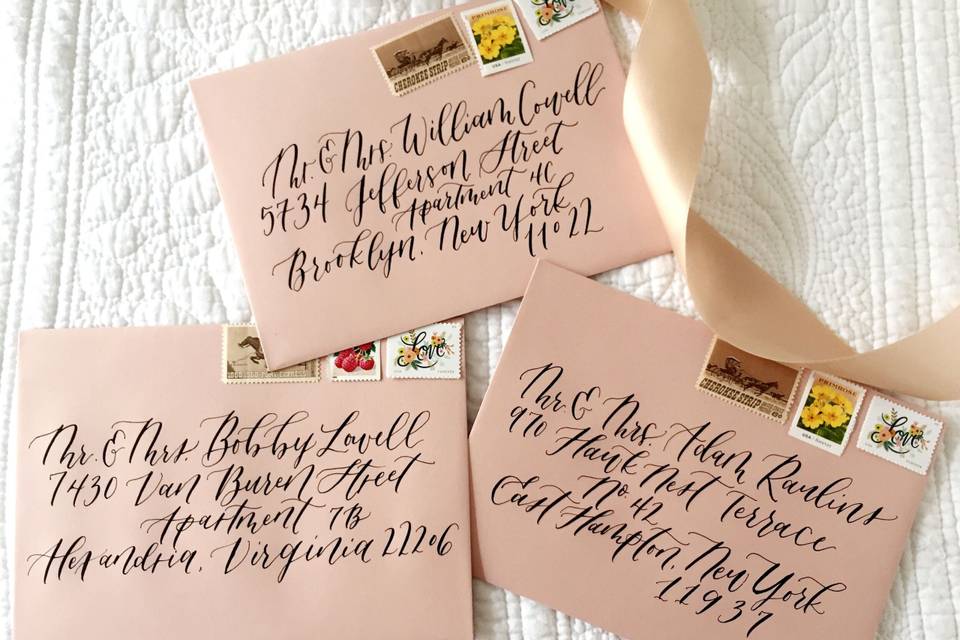 CHEROKEE STRIP
PRIMROSE
USA forever
Mr. & Mrs. William Cowell
5734 Jefferson Street
Apartment 4C
Brooklyn, New York
11022
Love
Mr. & Mrs. Bobby Lowell
7430 Van Buren Street
Apartment 7B
Alexandria, Virginia 22206
CHEROKEE STRIP
PRIMROSE
USA forever
Love
Mr. & Mrs. Adam Rawlins
970 Hawk Nest Terrace
No. 42
East Hampton, New York
11937